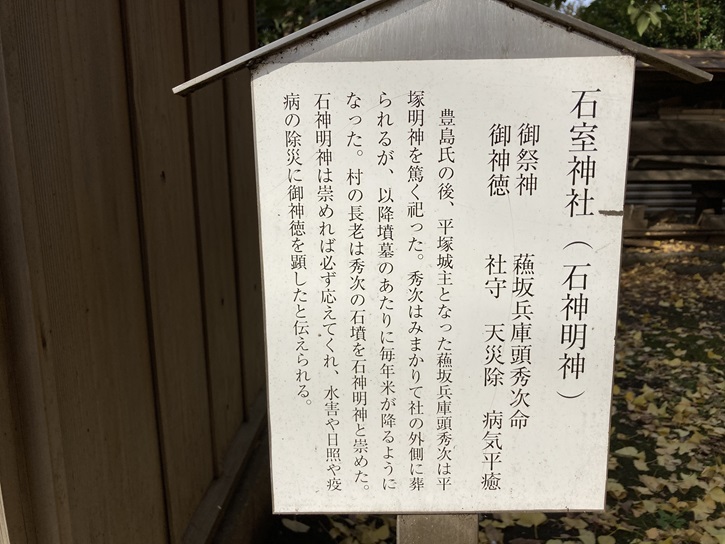 石室神社（石神明神）
御祭神　蘓坂兵庫頭秀次命
御神徳　社守　天災除　病気平癒
豊島氏の後、平塚城主となった蘓坂兵庫頭秀次は平
塚明神を篤く祀った。秀次はみまかりて社の外側に葬
られるが、以降墳墓のあたりに毎年米が降るように
なった。村の長老は秀次の石墳を石神明神と崇めた。
石神明神は崇めれば必ず応えてくれ、水害や日照や疫
病の除災に御神徳を顕したと伝えられる。